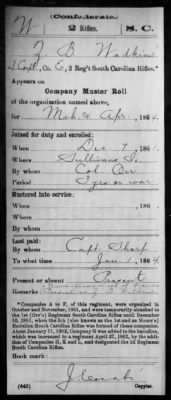 (Confederate.)
W 2 Rifles. S. C.
J B Watkins
Capt, Co. E, 2 Reg't South Carolina Rifles.*
Appears on
Company Muster Roll
of the organization named above,
for Mch & Apr, 1864
Joined for duty and enrolled:
When Dec 7, 1861
Where Sullivans Is.
By whom Col. Orr
Period 3 yrs or war
Mustered into service:
When , 186
Where
By whom
Last paid:
By whom Capt Sharp
To what time Jan 1, 1864
Present or absent Present
Remarks:
*Companies A to F, of this regiment, were organized in
October and November, 1861, and were temporarily attached to the
1st (Orr's) Regiment South Carolina Rifles until December
1861, when the 5th (also known as the 1st and as Moore's)
Battalion South Carolina Rifles was formed of these companies.
About January 11, 1862, Company G was added to the battalion,
which was increased to a regiment April 27, 1862, by the addi-
tion of Companies H, K and L, and designated the 2d Regiment
South Carolina Rifles.
Book mark:
(642) Copyist.